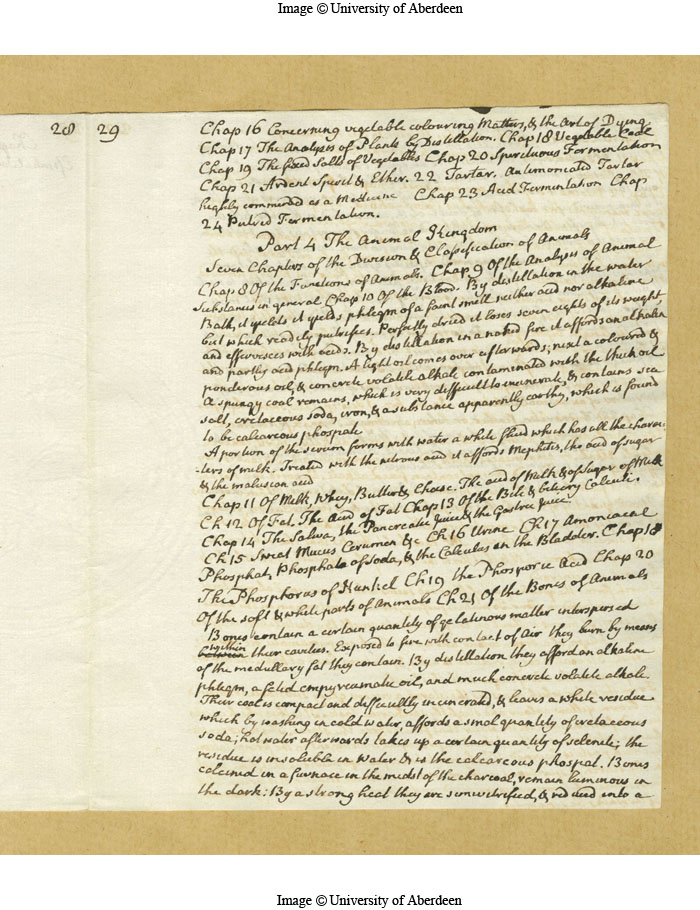 Image © University of Aberdeen
28 29
Chap 16 Concerning vegetable colouring Matters, & the Art of Dying
Chap 17 The Analysis of Plants by Distillation. Chap 18 Vegetable Coal
Chap 19 The fixed Salts of Vegetables Chap 20. Spirituous Fermentation
Chap 21 Ardent Spirit & Ether. 22 Tartar. Antimoniated Tartar
highly commended as a Medicine Chap 23 Acid Fermentation Chap
24 Putrid Fermentation.
Part 4 The Animal Kingdom
Seven Chapters of the Division & Classification of Animals
Chap 8 Of the Functions of Animals. Chap 9 Of the Analysis of Animal
Substances in general Chap 10 Of the Blood. By distillation in the water
Bath, it yields it yields phlegm of a faint smell neither acid nor alkaline
but which readily putrifies. Perfectly dried it loses seven eights of its weight,
and effervesces with acids. By distillation in a naked fire it affords an alkaline
and partly acid phlegm. A light oil comes over afterwards; next a coloured &
ponderous oil, & concrete volatile alkali contaminated with the thick oil
A spungy coal remains, which is very difficult to incinerate, & contains sea
salt, cretaceous soda, iron, & a substance apparently earthy, which is found
to be calcareous phospate
A portion of the serum forms with water a white fluid which has all the charac-
-ters of milk. Treated with the nitrous acid it affords Mephitis, the acid of sugar
& the malusian acid
Chap 11 Of Milk, Whey, Butter & Chese. The acid of Milk & of Sugar of Milk
Ch 12 Of Fat. The Acid of Fat Chap 13 Of the Bile & biliary Calculi.
Chap 14 The Saliva, the Pancreatic Juice & the Gastric Juice
Ch 15 Sweat Mucus Cerumen &c Ch 16 Urine Ch 17 Amoniacal
Phosphat, Phosphate of Soda, & the Calculus in the Bladder. Chap 18
The Phosphorus of Kunkel Ch 19 the Phosporic Acid Chap 20
Of the soft & white parts of Animals Ch 21 Of the Bones of Animals
Bones contain a certain quantity of gelatinous matter interspersed
within their cavities. Exposed to fire with contact of Air they burn by means
of the medullary fat they contain. By distillation they afford an alkaline
phlegm, a fetid empyreumatic oil, and much concrete volatile alkali.
Their coal is compact and difficultly incinerated, & leaves a white residue
which by washing in cold water, affords a smal quantity of cretaceous
soda; hot water afterwards takes up a certain quantity of selenite; the
residue is insoluble in water & is the calcareous phospat. Bones
calcined in a furnace in the midst of the charcoal, remain luminous in
the dark: By a strong heat they are semivitrified, & reduced into a
Image © University of Aberdeen